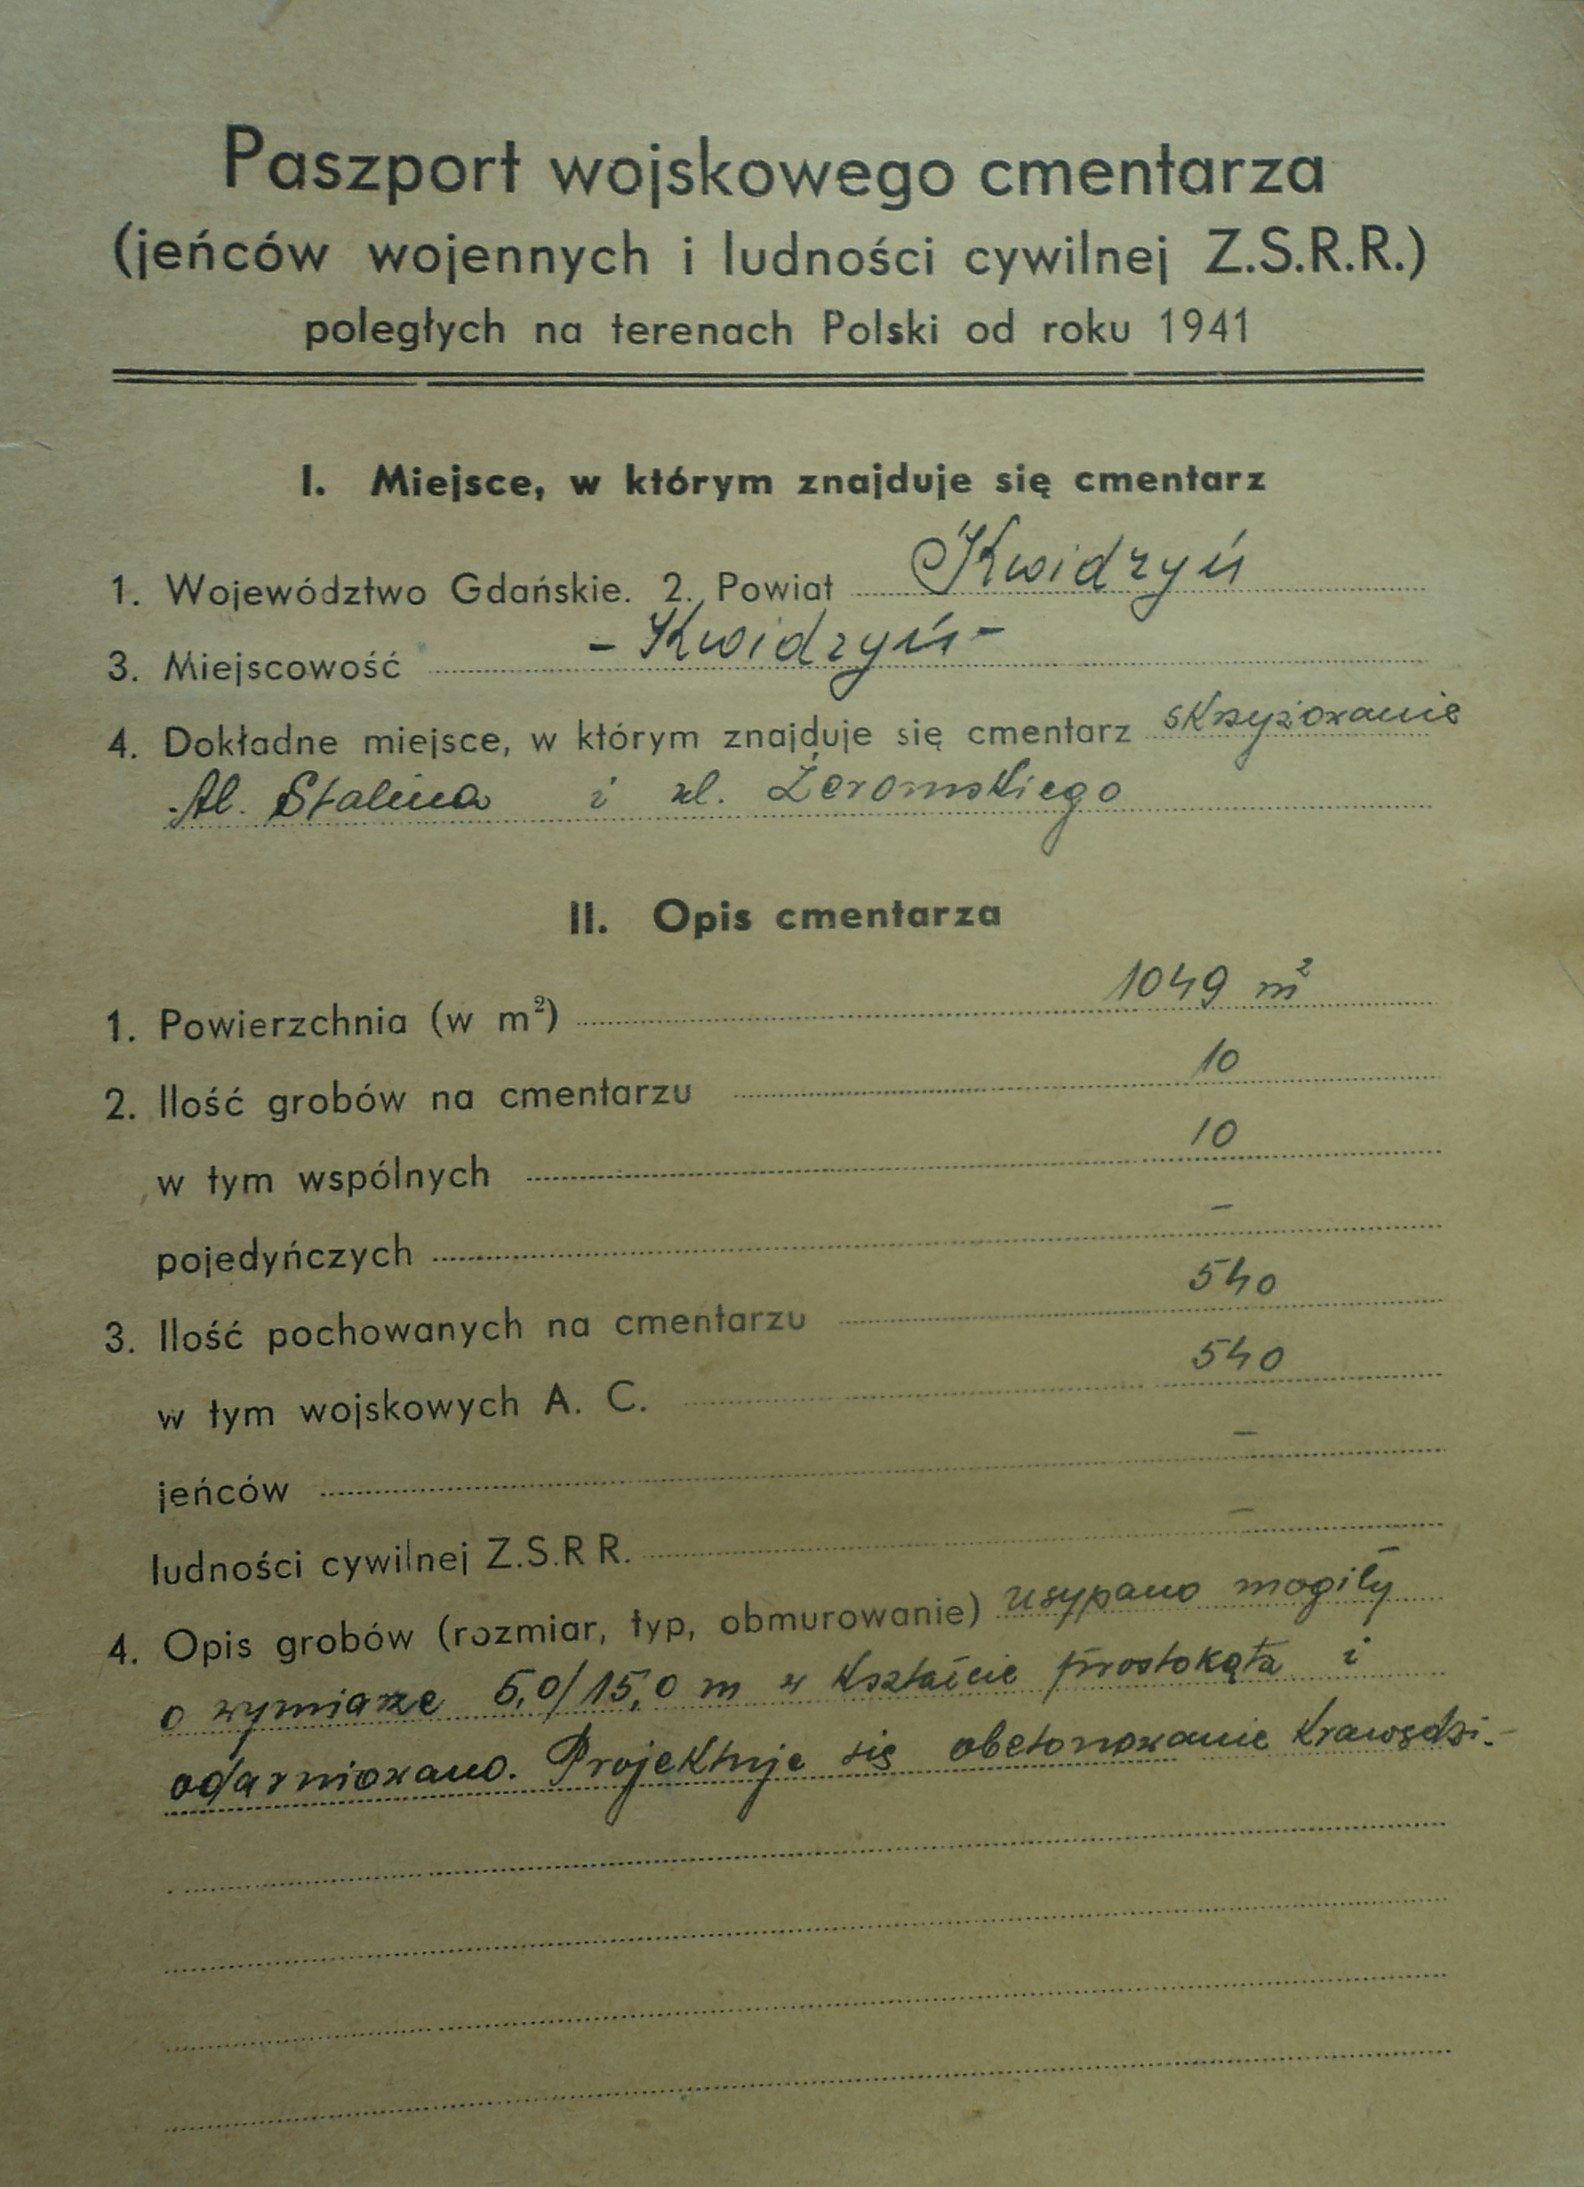 Paszport wojskowego cmentarza
(jeńców wojennych i ludności cywilnej Z.S.R.R.)
poległych na terenach Polski od roku 1941
I. Miejsce, w którym znajduje się cmentarz
1. Województwo Gdańskie. 2. Powiat Kwidzyń
3. Miejscowość - Kwidzyń -
4. Dokładne miejsce, w którym znajduje się cmentarz skrzyżowanie
Al. Stalina i ul. Żeromskiego
II. Opis cmentarza
1. Powierzchnia (w m²) 1049 m²
2. Ilość grobów na cmentarzu 10
w tym wspólnych 10
pojedyńczych -
3. Ilość pochowanych na cmentarzu 540
w tym wojskowych A. C. 540
jeńców -
ludności cywilnej Z.S.R R. -
4. Opis grobów (rozmiar, typ, obmurowanie) usypano mogiły
o wymiarze 5,0/15,0 m w kształcie prostokąta i
odarniowano. Projektuje się obetonowanie krawędzi.-